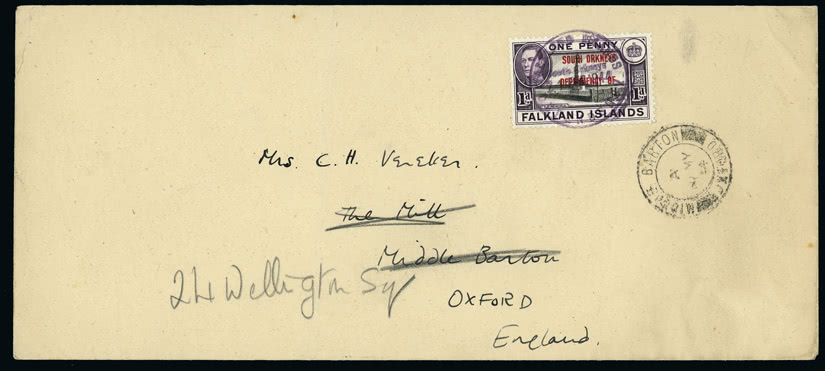 ONE PENNY
SOUTH ORKNEYS
DEPENDENCY OF
1d 1d
FALKLAND ISLANDS
Mrs. C. H. Vereker.
The Mill
Middle Barton
24 Wellington Sq
OXFORD
England.
BARTON
MIDDLE
MY